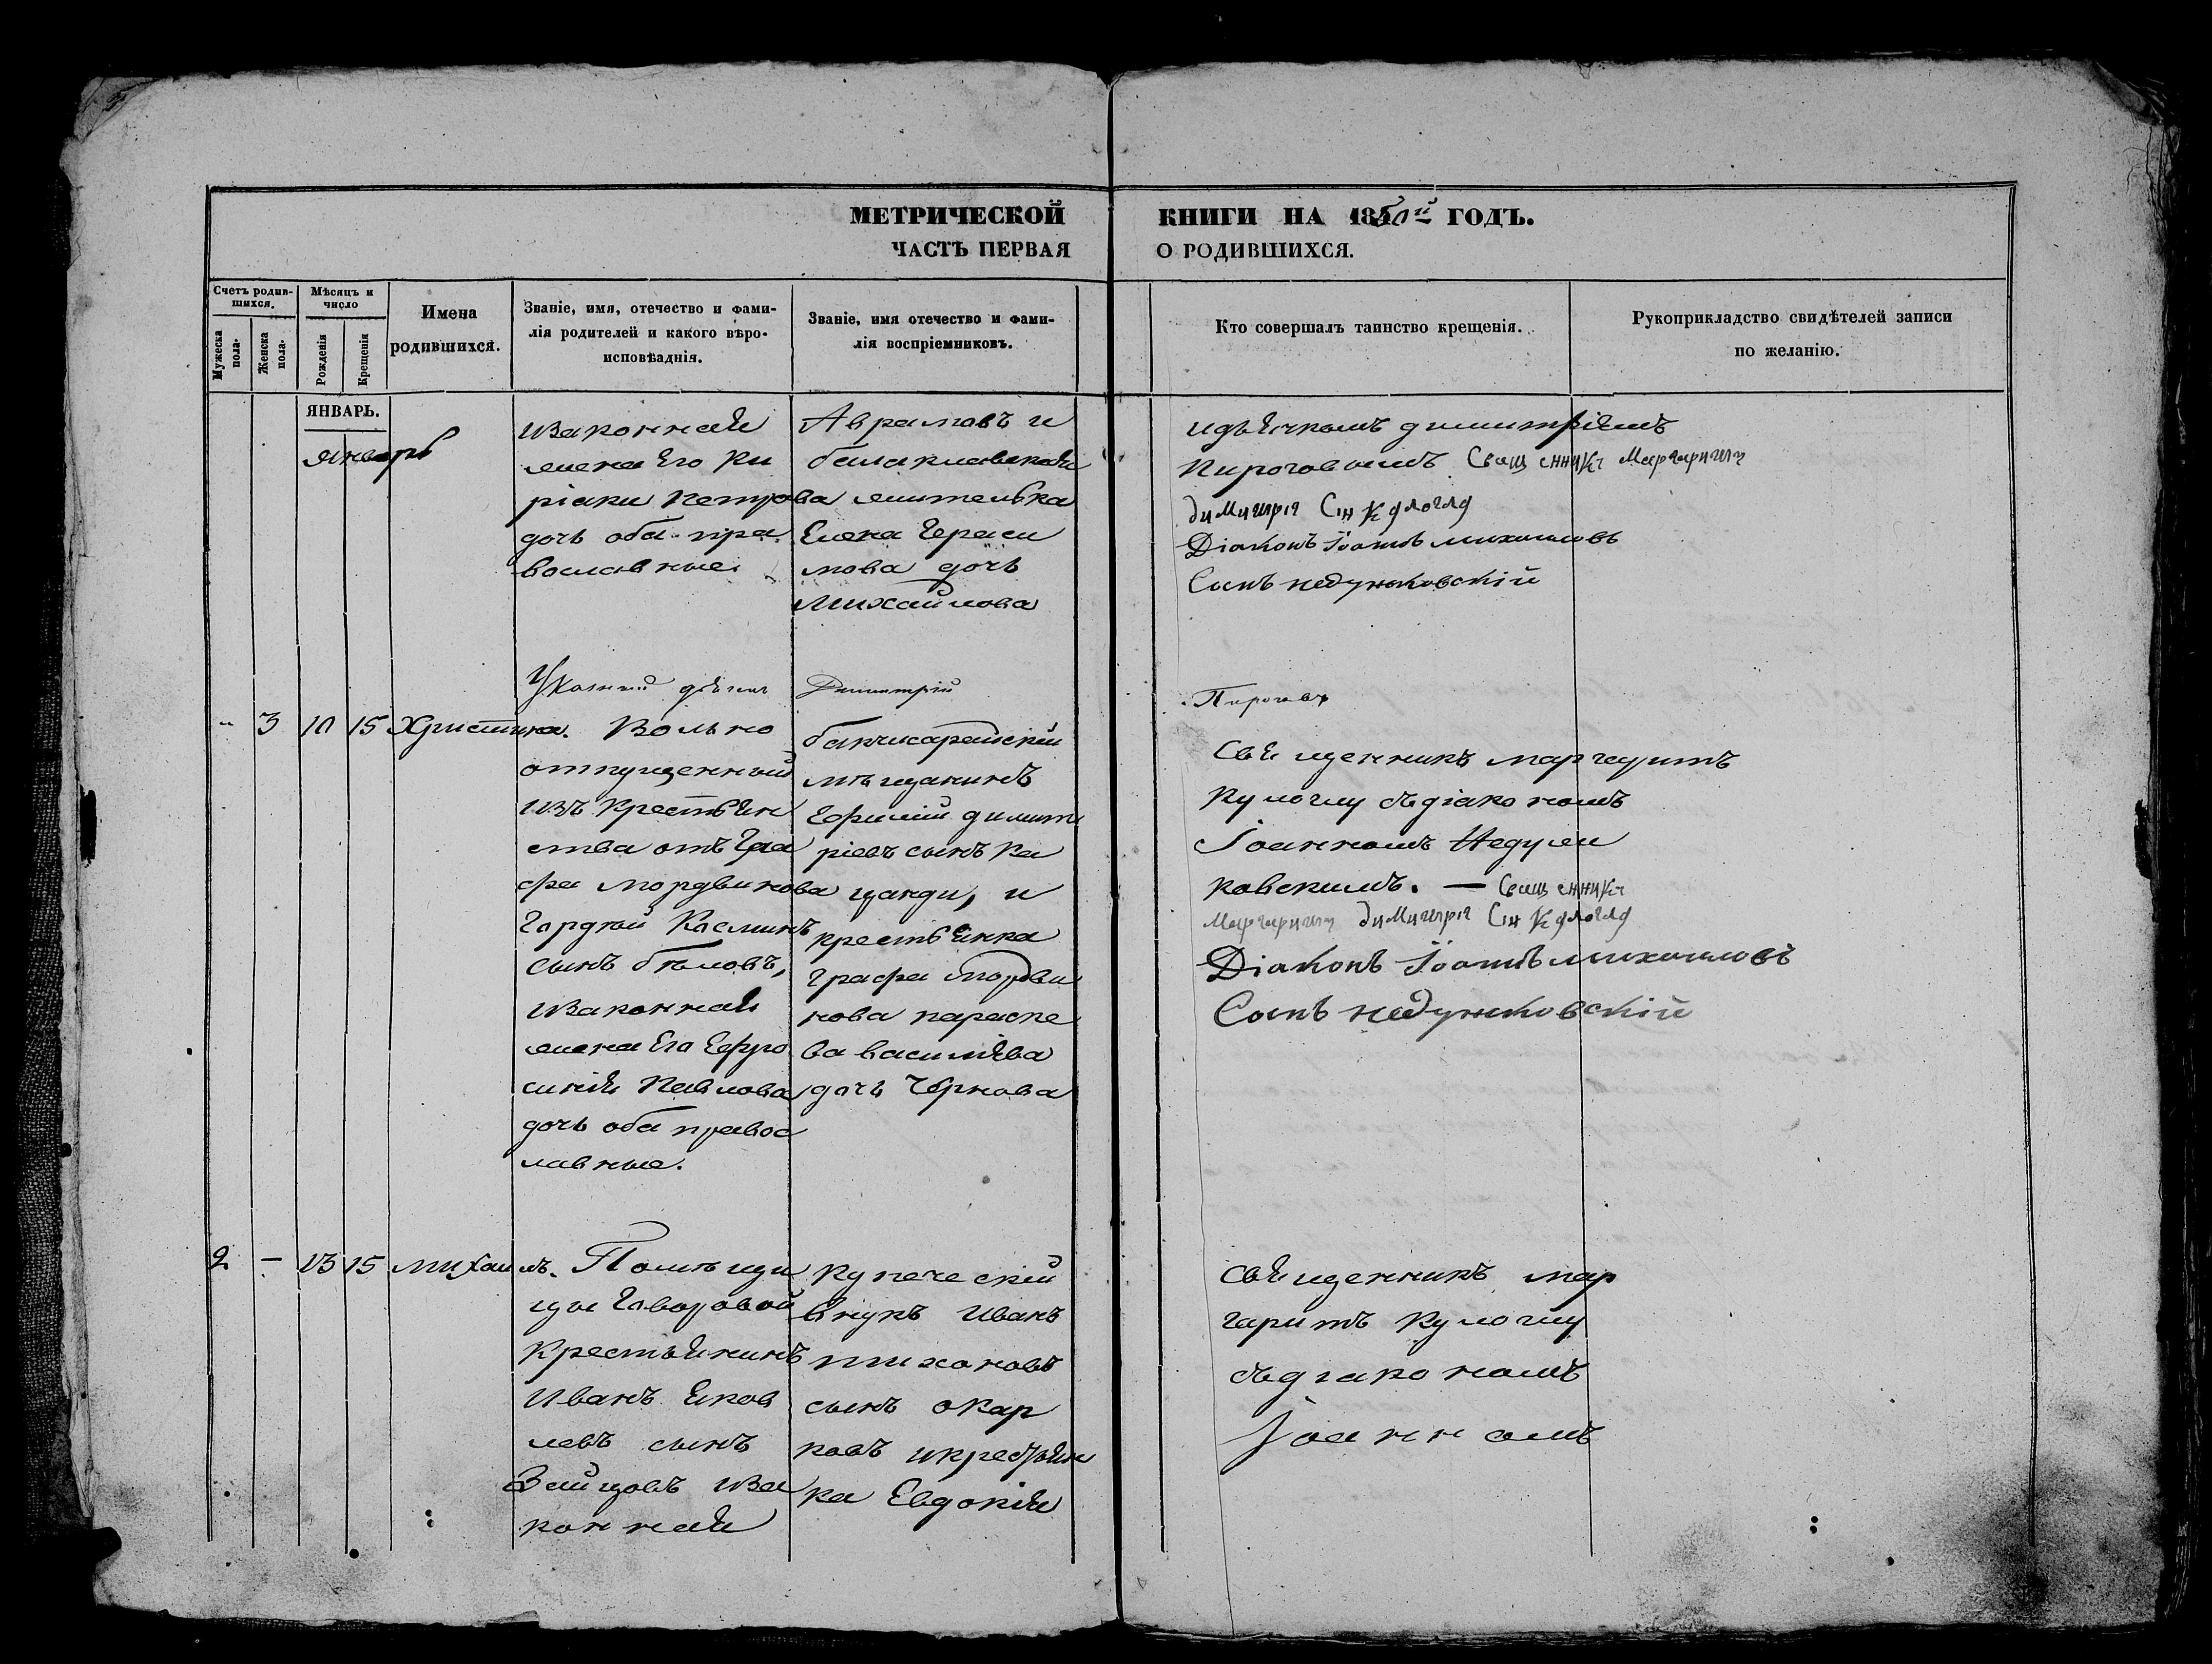 МЕТРИЧЕСКОЙ КНИГИ НА 1850й ГОДЪ.
ЧАСТЬ ПЕРВАЯ О РОДИВШИХСЯ.
Счетъ родившихся.
Мужеска пола.
Женска пола.
Мѣсяцъ и число
Рожденія
Крещенія
Имена родившихся.
Званіе, имя, отечество и фами-
лія родителей и какого вѣро-
исповѣаднія.
Званіе, имя отечество и фами-
лія воспріемниковъ.
Кто совершалъ таинство крещенія.
Рукоприкладство свидѣтелей записи
по желанію.
ЯНВАРЬ.
январь
изаконная
жена Его Ки
ріаки Петрова
дочь оба пра
вославные
Аврамовъ и
балаклавская
жителька
Елена Гераси
мова дочь
Михайлова
идьячкомъ димитріемъ
Пироговымъ Священникъ Маргаритъ
димитрія Сн Кулоглу
Діаконъ Іоаннъ михаиловъ
Сынъ недужковскій
Указный дьячокъ Димитрій Пироговъ
- 3 10 15 Христина.
Вольно
отпущенный
изъ крестьян
ства отъ Гра
фа мордвинова
Гордѣй Косминъ
сынъ бѣловъ,
изаконная
жена Его Ефро
синія Павлова
дочь оба правос
лавные.
бакчисарайскій
мѣщанинъ
Ефимій димит
ріевъ сынъ Ка
цанди, и
крестьянка
графа мордви
нова параске
ва василіева
дочь Чернова
священникъ маргаритъ
Кулоглу съдіакономъ
Іоанномъ Недуж
ковскимъ. — Священникъ
Маргаритъ димитрія Сн Кулоглу
Діаконъ Іоаннъ михаиловъ
Сынъ недужковскій
2 - 13 15 михаилъ.
Помѣщи
цы Говоровой
Крестьянинъ
Иванъ Яков
левъ сынъ
Зайцовъ иза
конная
Купеческій
внукъ Иванъ
тихоновъ
сынъ Окар
ковъ икрестьян
ка Евдокія
священникъ мар
гаритъ Кулоглу
съдіакономъ
Іоанномъ